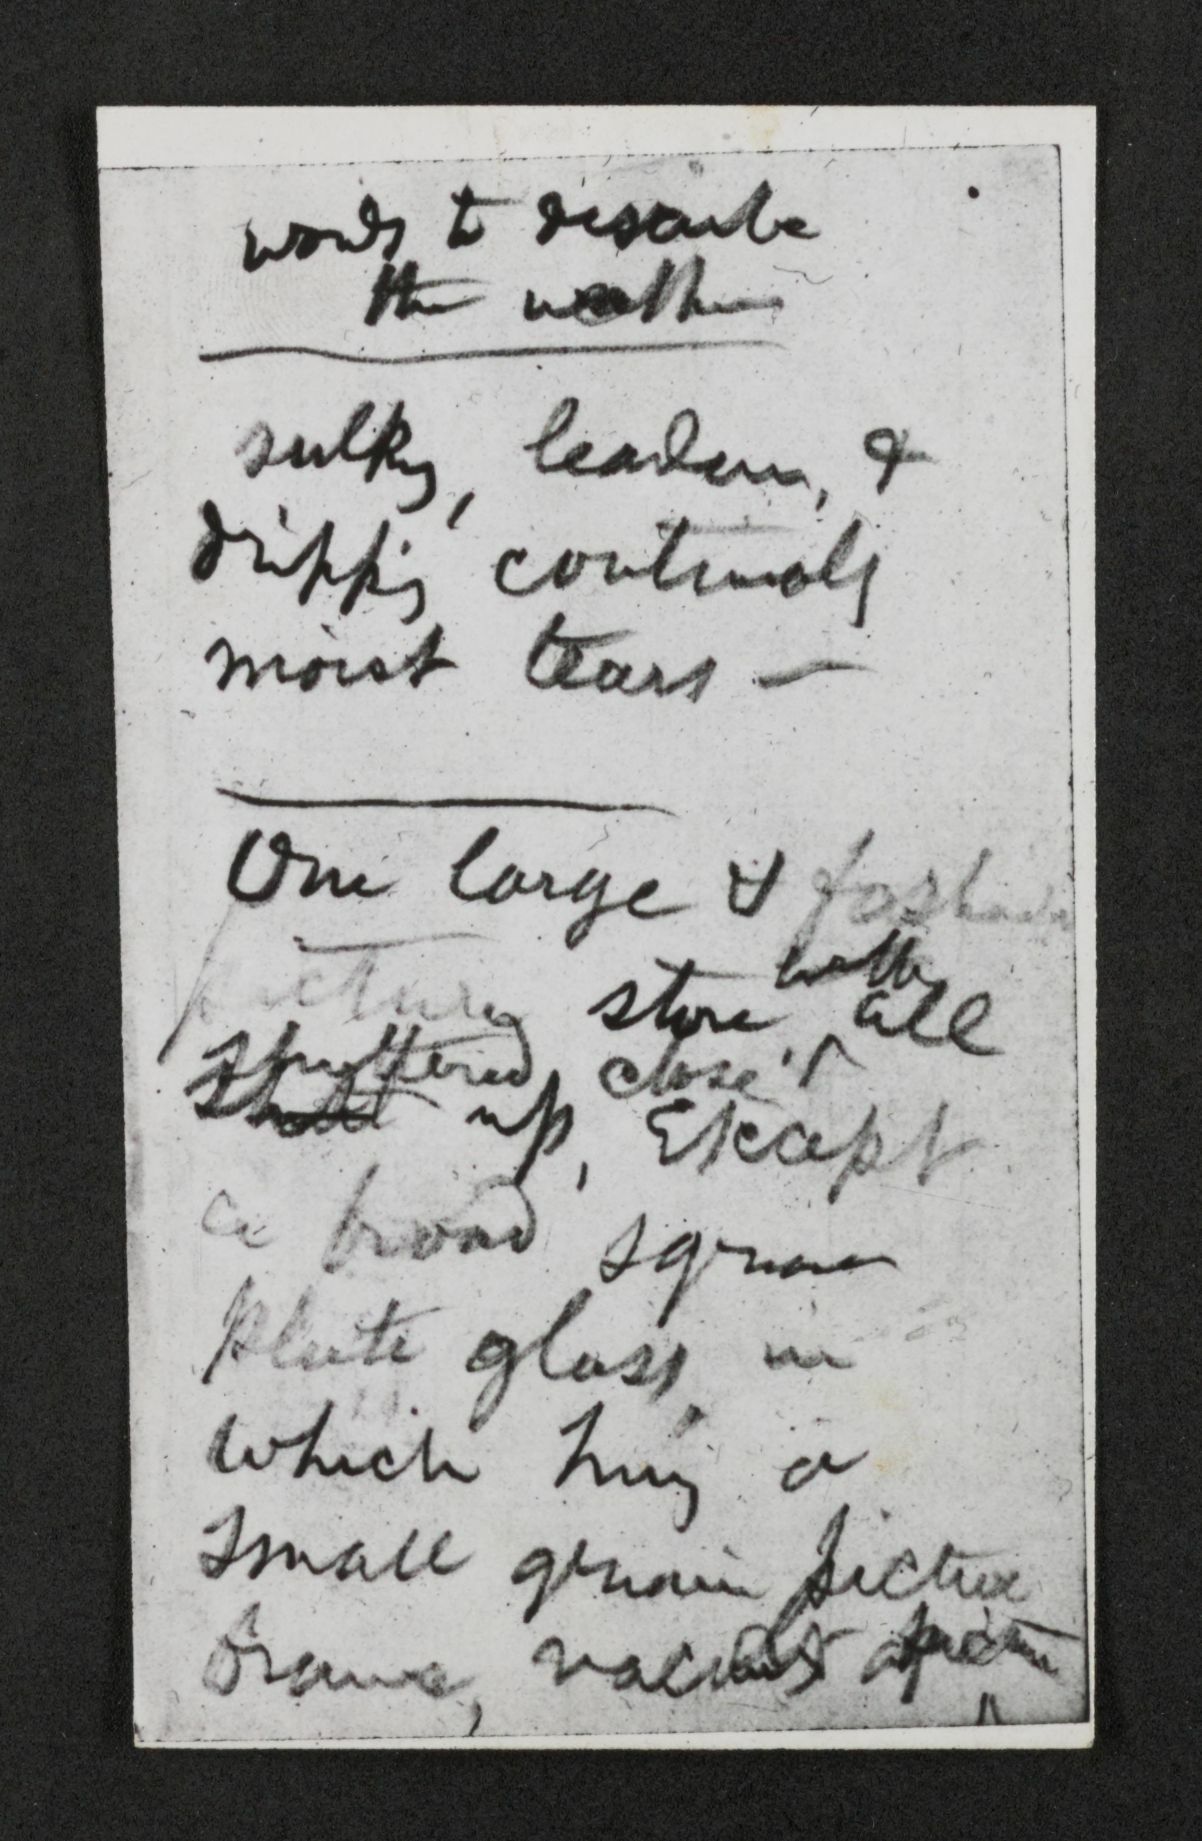 words to describe
the weather
sulky, leaden, &
dripping continually
moist tears —
One large & fashionable
picture store with all
shuttered close
shut up, Except
a broad square
plate glass, in
which hung a
small picture
frame, vacant a picture